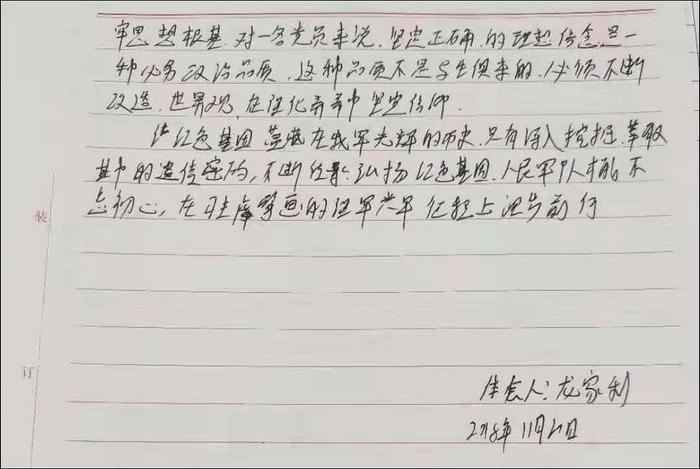 牢思想根基。对一名党员来说,坚定正确的理想信念是一
种必务政治品质,这种品质不是与生俱来的,必须不断
改造世界观,在强化弄弄中坚定信仰。
红色基因蕴藏在我军光辉的历史,只有深入挖掘、萃取
其中的遗传密码,不断传承弘扬红色基因,人民军队才能不
忘初心,在习主席擘画的强军兴军征程上阔步前行
装
订
体会人:龙家利
2018年11月21日